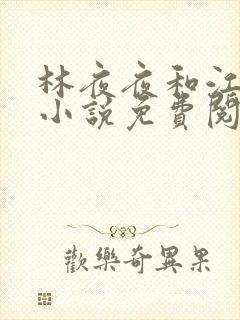 林夜夜和江
小說免費閱
歡樂奇異果